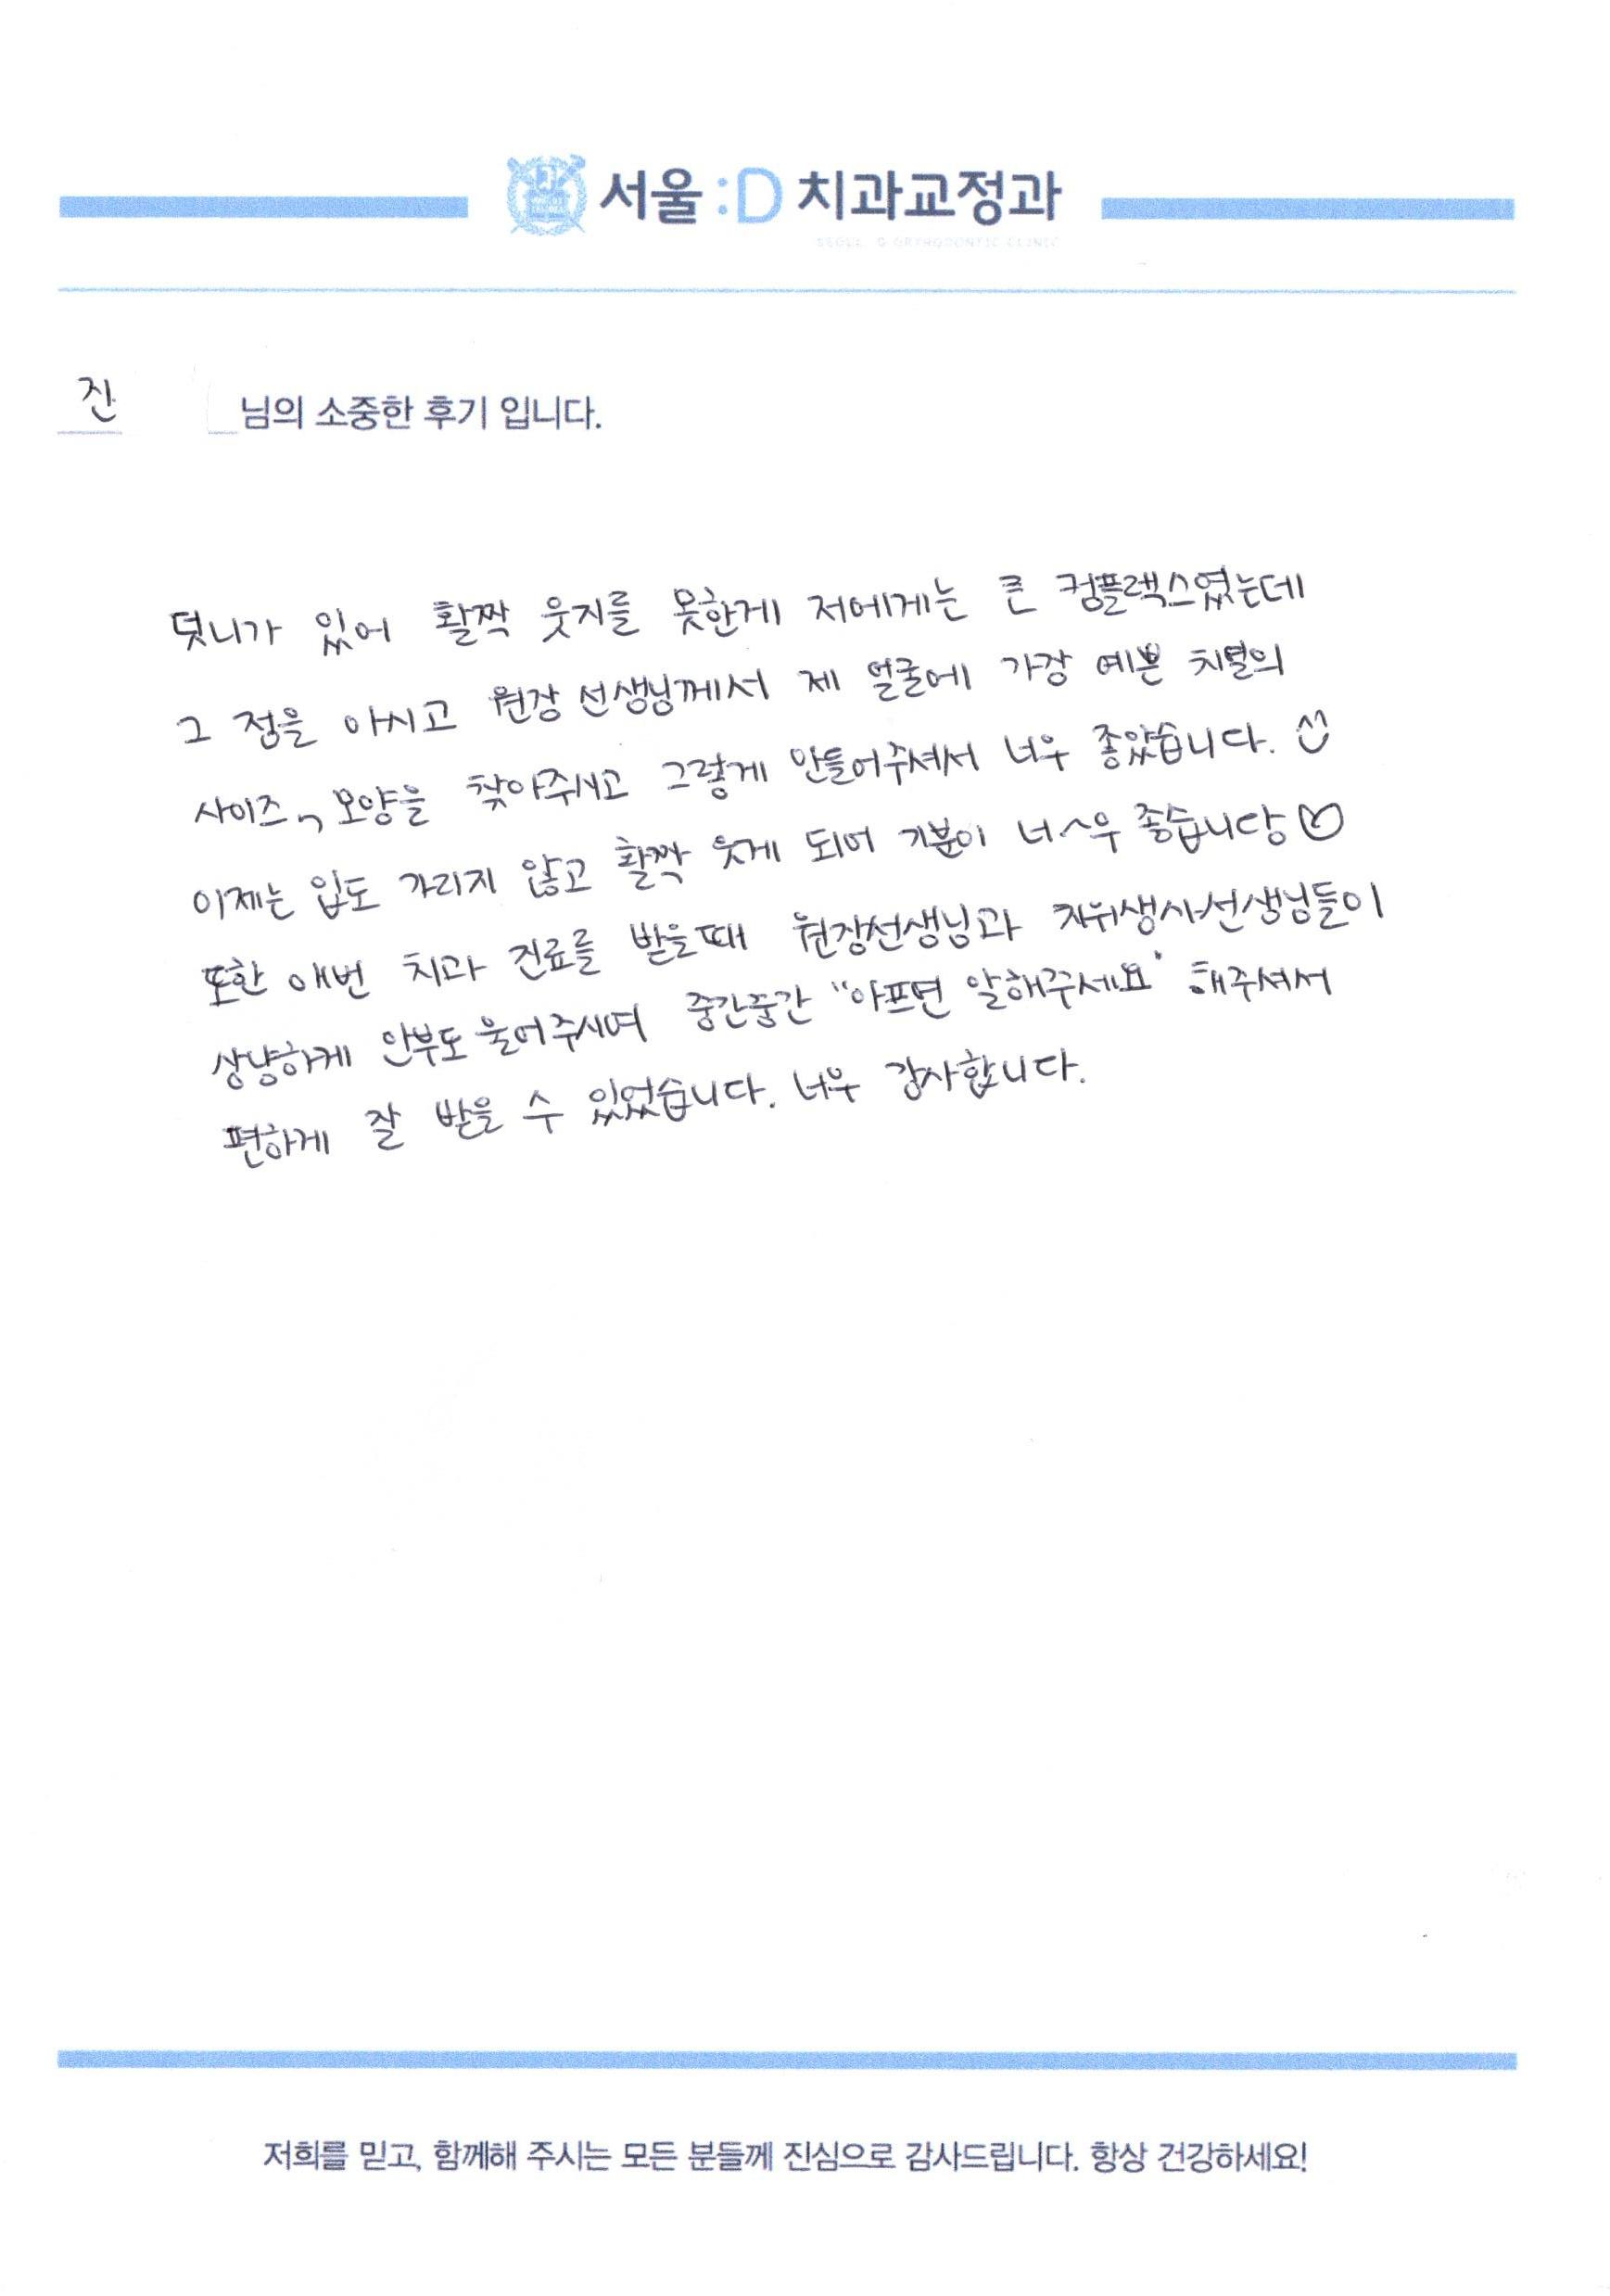 서울:D 치과교정과
SEOUL :D ORTHODONTIC CLINIC
진 님의 소중한 후기 입니다.
덧니가 있어 활짝 웃지를 못한게 저에게는 큰 컴플렉스였는데
그 점을 아시고 원장 선생님께서 제 얼굴에 가장 예쁜 치열의
사이즈, 모양을 찾아주시고 그렇게 만들어주셔서 너무 좋았습니다. ^^
이제는 입도 가리지 않고 활짝 웃게 되어 기분이 너~무 좋습니당♡
또한 매번 치과 진료를 받을때 원장선생님과 치위생사선생님들이
상냥하게 안부도 물어주시며 중간중간 "아프면 말해주세요" 해주셔서
편하게 잘 받을 수 있었습니다. 너무 감사합니다.
저희를 믿고, 함께해 주시는 모든 분들께 진심으로 감사드립니다. 항상 건강하세요!